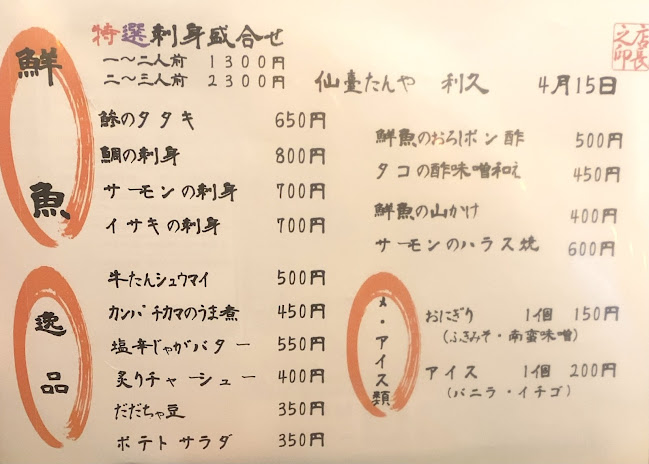 鮮魚
特選刺身盛合せ
一〜二人前 1300円
二〜三人前 2300円
鯵のタタキ 650円
鯛の刺身 800円
サーモンの刺身 700円
イサキの刺身 700円
仙臺たんや 利久 4月15日
店長之印
鮮魚のおろしポン酢 500円
タコの酢味噌和え 450円
鮮魚の山かけ 400円
サーモンのハラス焼 600円
逸品
牛たんシュウマイ 500円
カンパチカマのうま煮 450円
塩辛じゃがバター 550円
炙りチャーシュー 400円
だだちゃ豆 350円
ポテトサラダ 350円
〆・アイス類
おにぎり 1個 150円
(ふきみそ・南蛮味噌)
アイス 1個 200円
(バニラ・イチゴ)